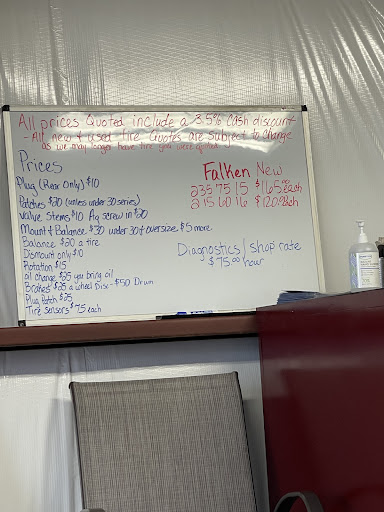 All prices Quoted include a 3.5% Cash discount
- All new & used tire Quotes are Subject to Change
as we may longer have tire you were quoted
Prices
Plug (Rear Only) $10
Patches $20 (unless under 30 series)
Valve Stems $10 Ag screw in $20
Mount & Balance $30 under 30 & oversize $5 more
Balance $20 a tire
Dismount only $10
Rotation $15
oil change $25 you bring oil
Brakes $25 a wheel Disc - $50 Drum
Plug Patch $25
Tire sensors $75 each
Falken New
235 75 15 $165.00 each
215 60 16 $120.98 each
Diagnostics / Shop rate
$75.00 hour